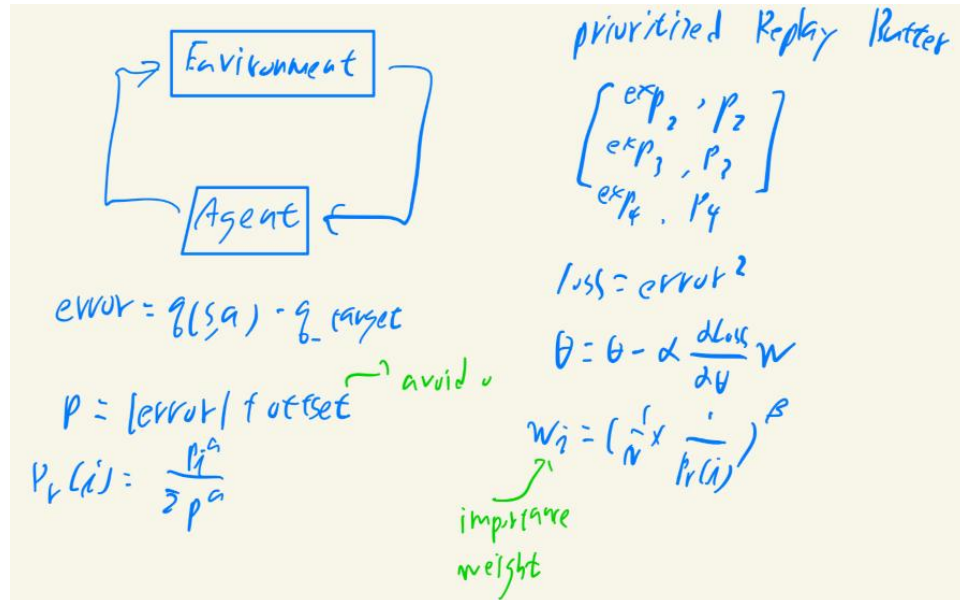 Environment
Agent
error = q(s,a) - q_target
p = |error| + offset → avoid 0
Pr(i) = pᵢᵃ / Σ pᵃ
prioritized Replay Buffer
exp₂, p₂
exp₃, p₃
exp₄, p₄
loss = error²
θ = θ - α dLoss/dθ w
wᵢ = (1/N × 1/Pr(i))^β
importance
weight